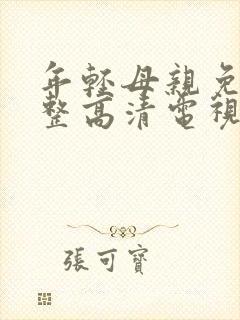 年輕母親免
整高清電視
張可寶